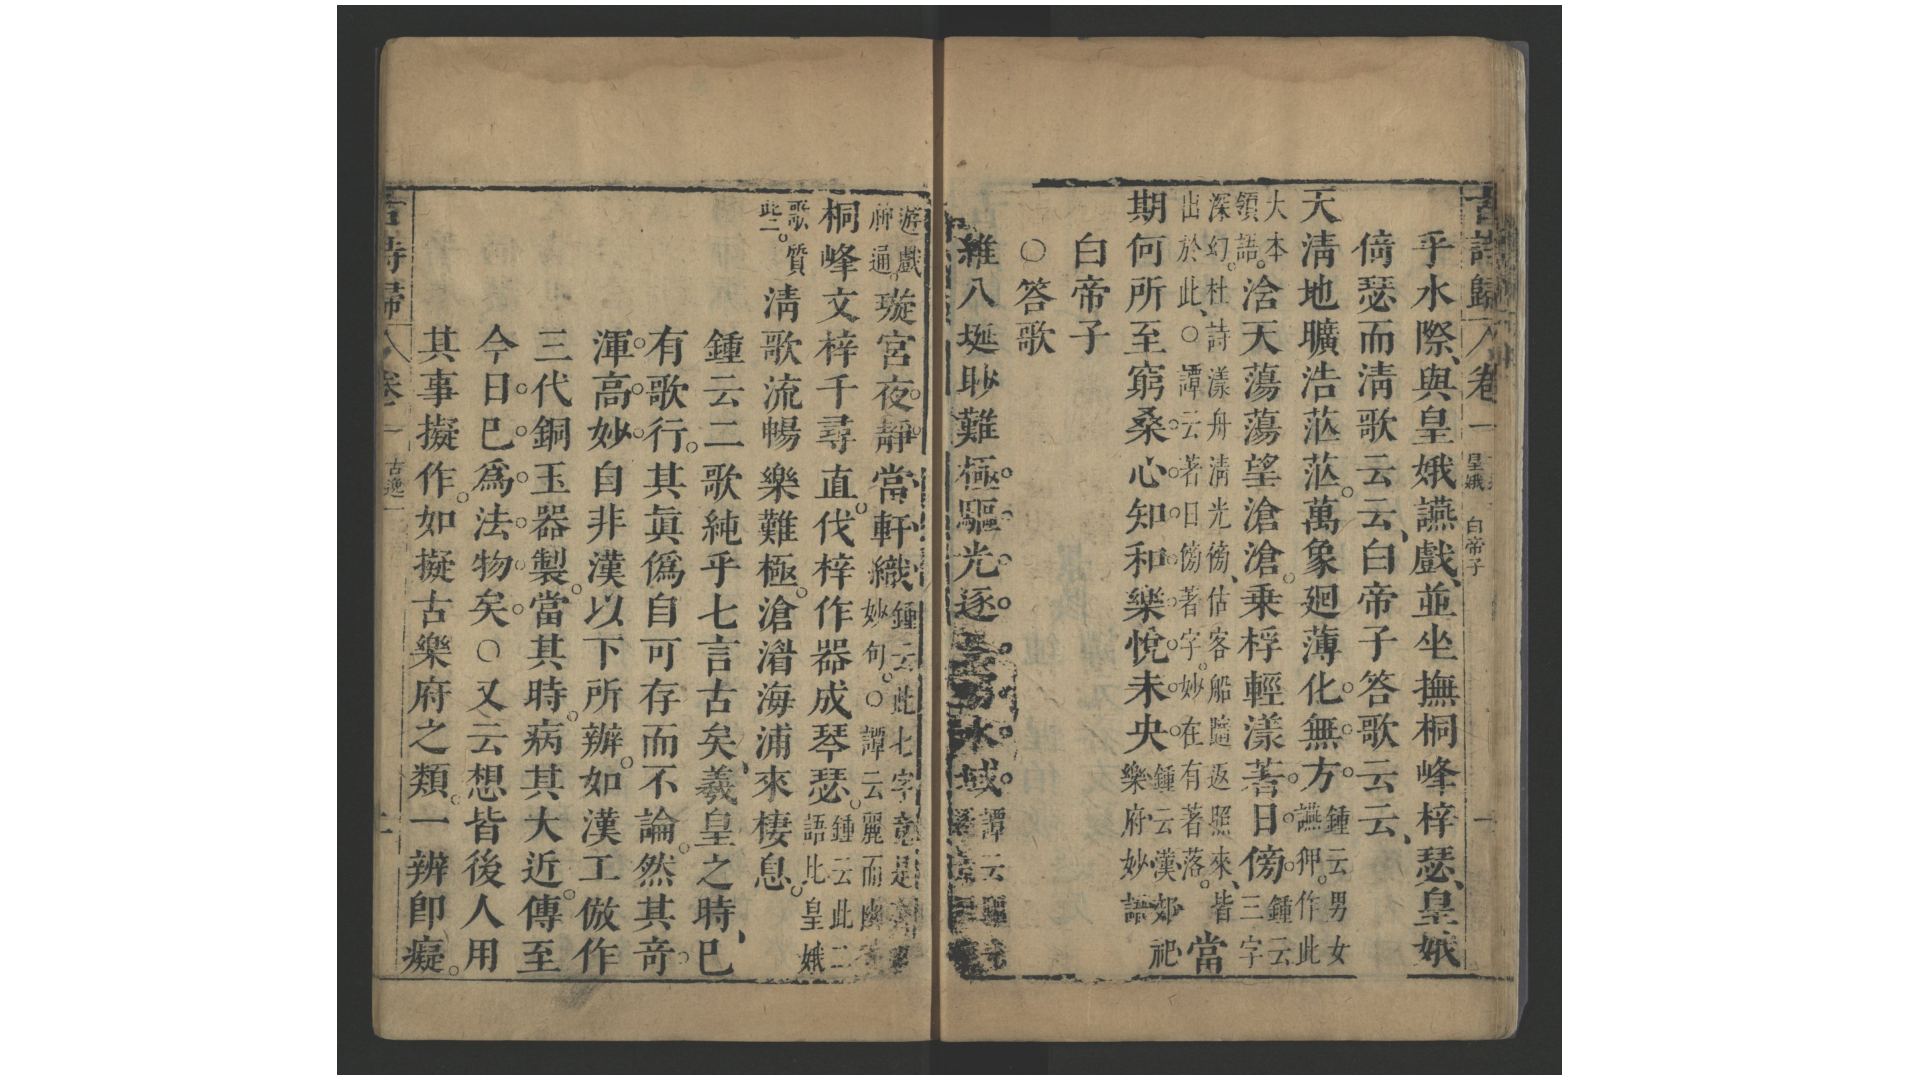 古詩歸 卷一 皇娥 白帝子 一
乎水際、與皇娥讌戲、並坐撫桐峰梓瑟、皇娥
倚瑟而淸歌云云、白帝子答歌云云、
天淸地曠浩茫茫。萬象廻薄化無方。鍾云男女讌狎。作此
大本領語。洽天蕩蕩望滄滄。乗桴輕漾著日傍。鍾云三字
深幻。杜詩漾舟淸光傍、估客船隨返照來、皆出於此、○譚云著日傍著字。妙在有著落。當
期何所至窮桑。心知和樂悅未央。鍾云漢郊祀樂府妙語
白帝子
○答歌
維八埏眇難極。驅光逐影窮水域。譚云驅光
遊戲神通。璇宮夜靜當軒織。鍾云此七字竟是妙句。○譚云麗而幽
桐峰文梓千尋直。伐梓作器成琴瑟。鍾云此二語比皇娥
歌質些。淸歌流暢樂難極。滄湽海浦來棲息。
鍾云二歌純乎七言古矣、羲皇之時、已
有歌行。其眞僞自可存而不論。然其奇
渾高妙自非漢以下所辦。如漢工倣作
三代銅玉器製。當其時。病其大近。傳至
今日巳爲法物矣。○又云想皆後人用
其事擬作。如擬古樂府之類。一辨卽癡。
古詩歸 卷一 古逸一